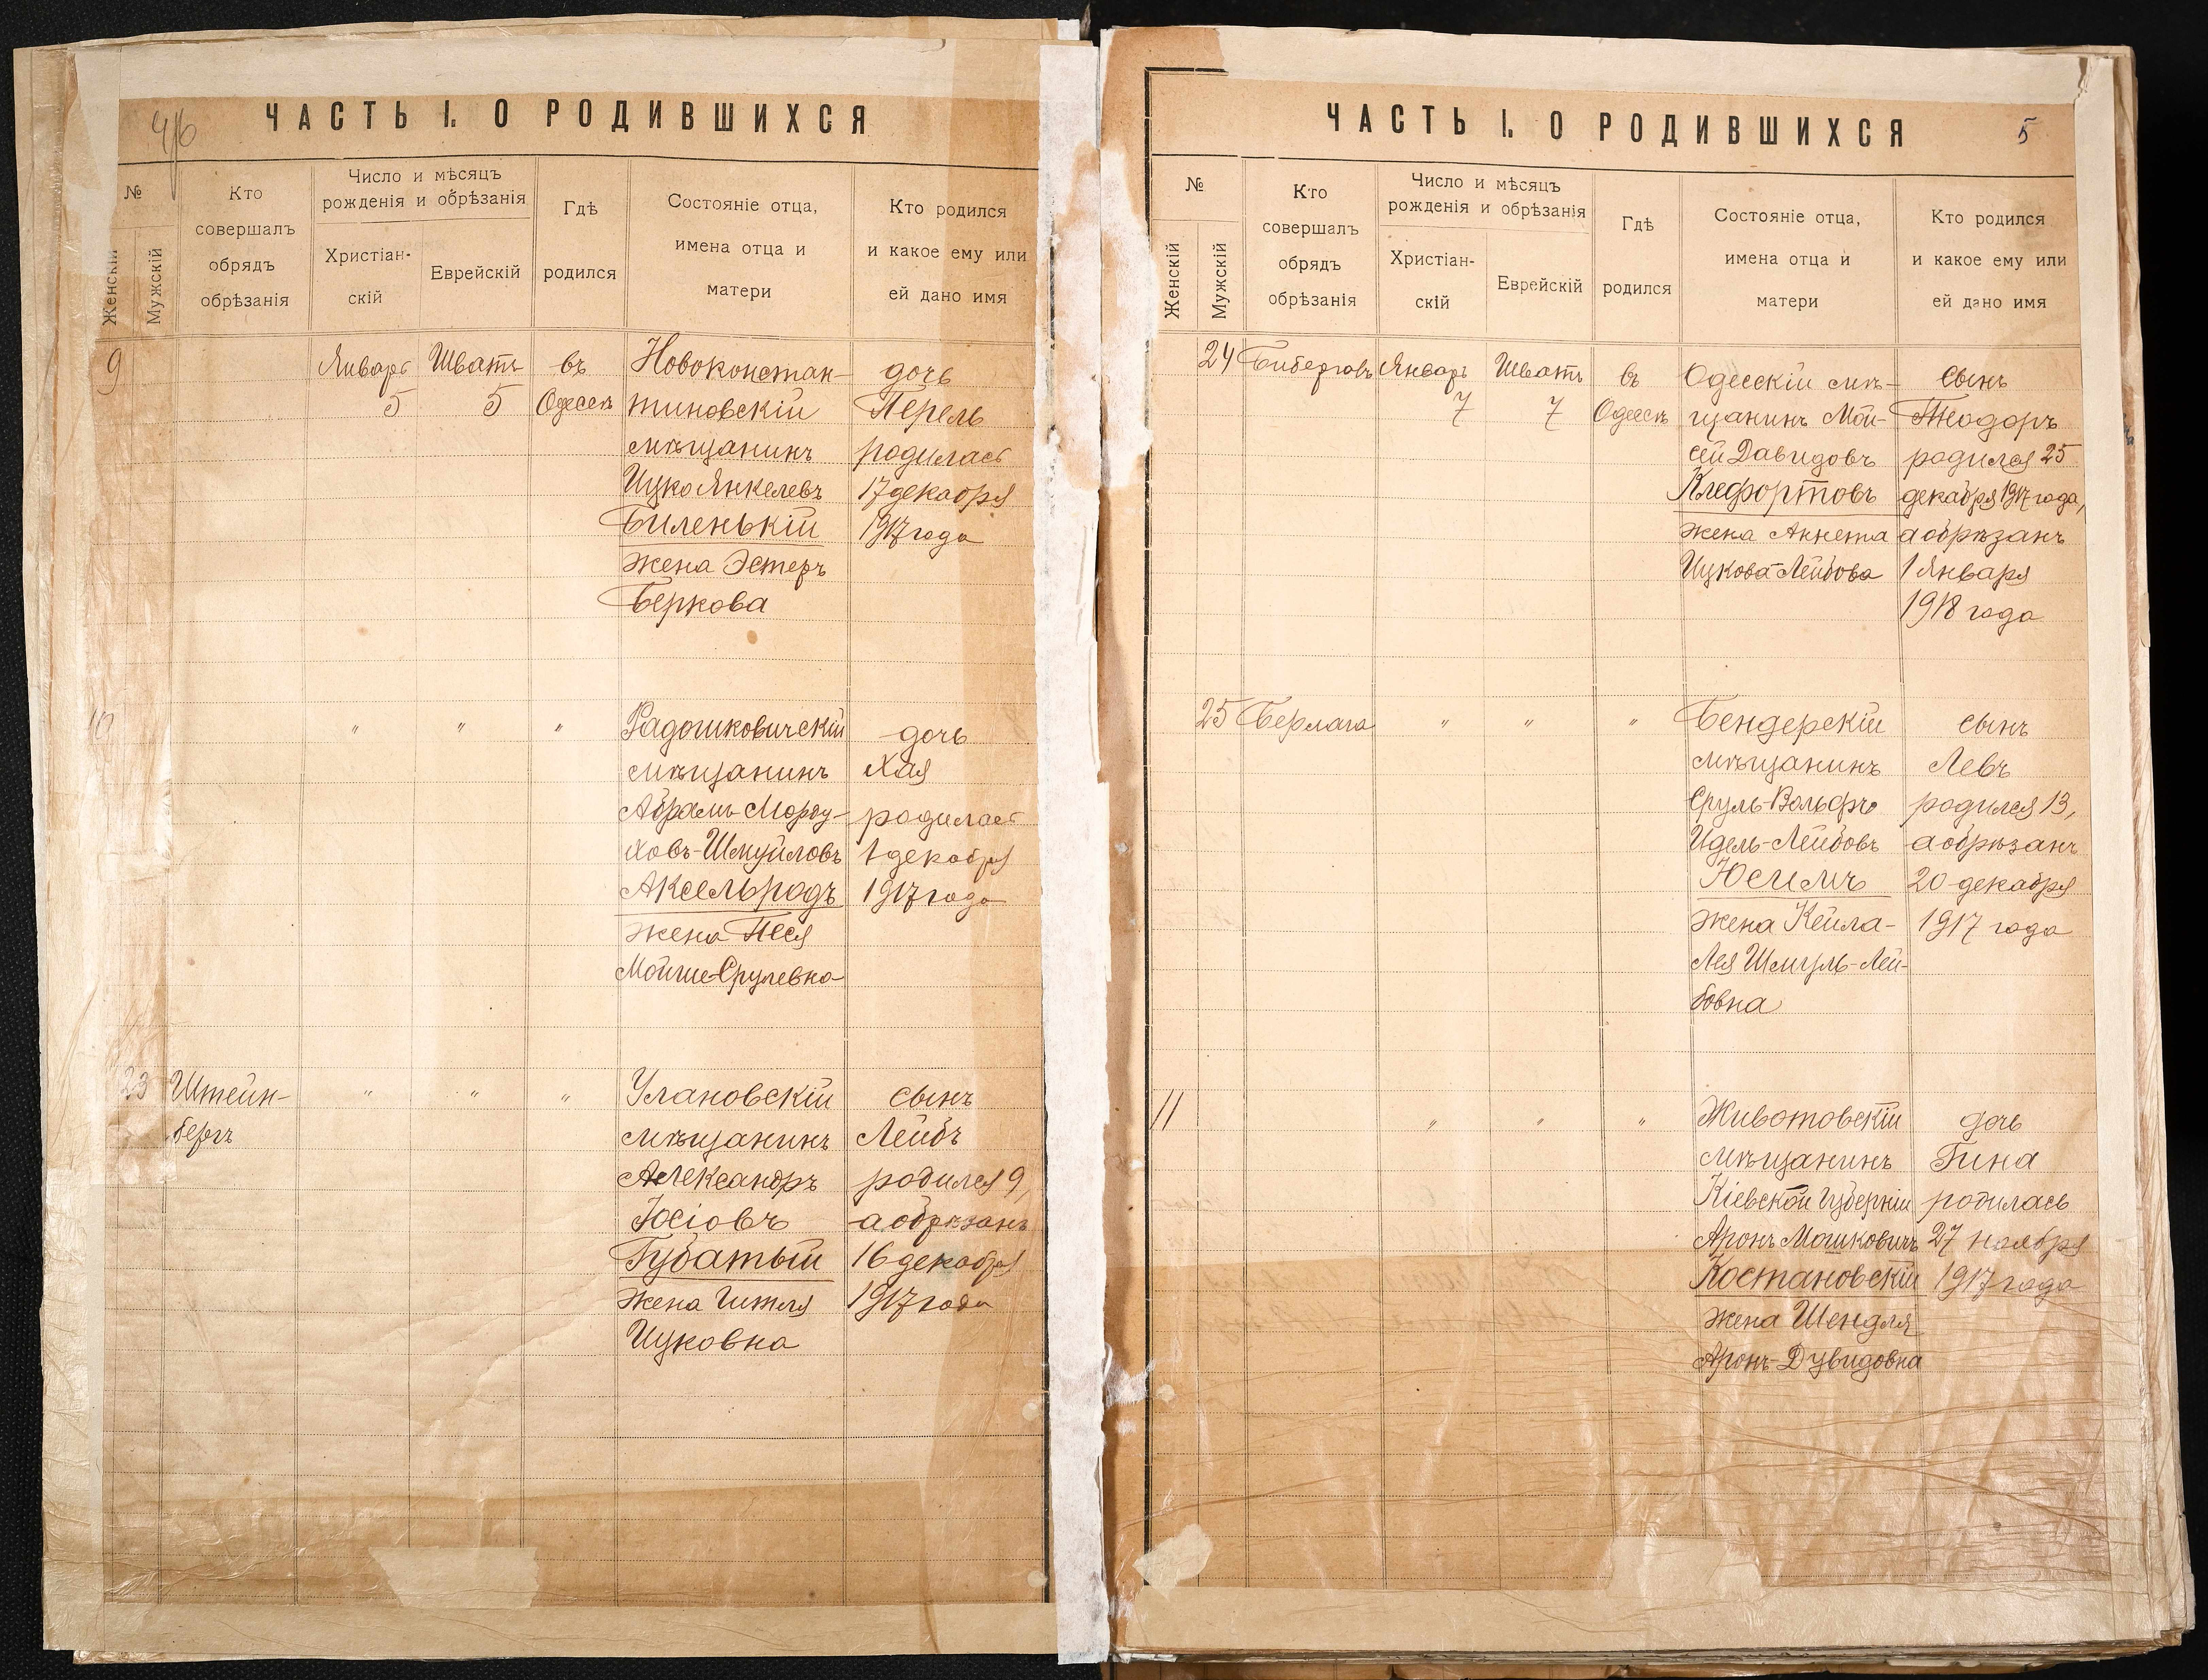 4/6
ЧАСТЬ I. О РОДИВШИХСЯ
№
Женскій
Мужскій
Кто
совершалъ
обрядъ
обрѣзанія
Число и мѣсяцъ
рожденія и обрѣзанія
Христіан-
скій
Еврейскій
Гдѣ
родился
Состояніе отца,
имена отца и
матери
Кто родился
и какое ему или
ей дано имя
9 Январь Шватъ въ Новоконстан- дочь
5 5 Одессѣ тиновскій Перель
мѣщанинъ родилась
Ицко Янкелевъ 17 декабря
Биленькій 1917 года
жена Эстеръ
Беркова
10 " " " Радошковичскій дочь
мѣщанинъ Хая
Абрамъ Морду- родилась
ховъ-Шмуйловъ 1 декабря
Аксельродъ 1917 года
жена Песя
Мойше-Срулевна
23 Штейн- " " " Улановскій сынъ
бергъ мѣщанинъ Лейбъ
Александръ родился 9,
Іосіовъ а обрѣзанъ
Губатый 16 декабря
жена Гитля 1917 года
Ицковна
ЧАСТЬ I. О РОДИВШИХСЯ 5
№
Женскій
Мужскій
Кто
совершалъ
обрядъ
обрѣзанія
Число и мѣсяцъ
рожденія и обрѣзанія
Христіан-
скій
Еврейскій
Гдѣ
родился
Состояніе отца,
имена отца и
матери
Кто родился
и какое ему или
ей дано имя
24 Биберговъ Январь Шватъ въ Одесскій мѣ- сынъ
7 7 Одессѣ щанинъ Мои- Теодоръ
сей Давидовъ родился 25
Клефортовъ декабря 1917 года,
жена Аннета а обрѣзанъ
Ицкова-Лейбова 1 Января
1918 года
25 Берлага " " " Бендерскій сынъ
мѣщанинъ Левъ
Сруль-Вольфъ родился 13,
Идель-Лейбовъ а обрѣзанъ
Юсимъ 20 декабря
жена Кейла- 1917 года
Лея Шмуль-Лей-
бовна
11 " " " Животовскій дочь
мѣщанинъ Гина
Кіевской Губерніи родилась
Аронъ Мошковичъ 27 ноября
Костановскій 1917 года
жена Шендля
Аронъ-Дувидовна